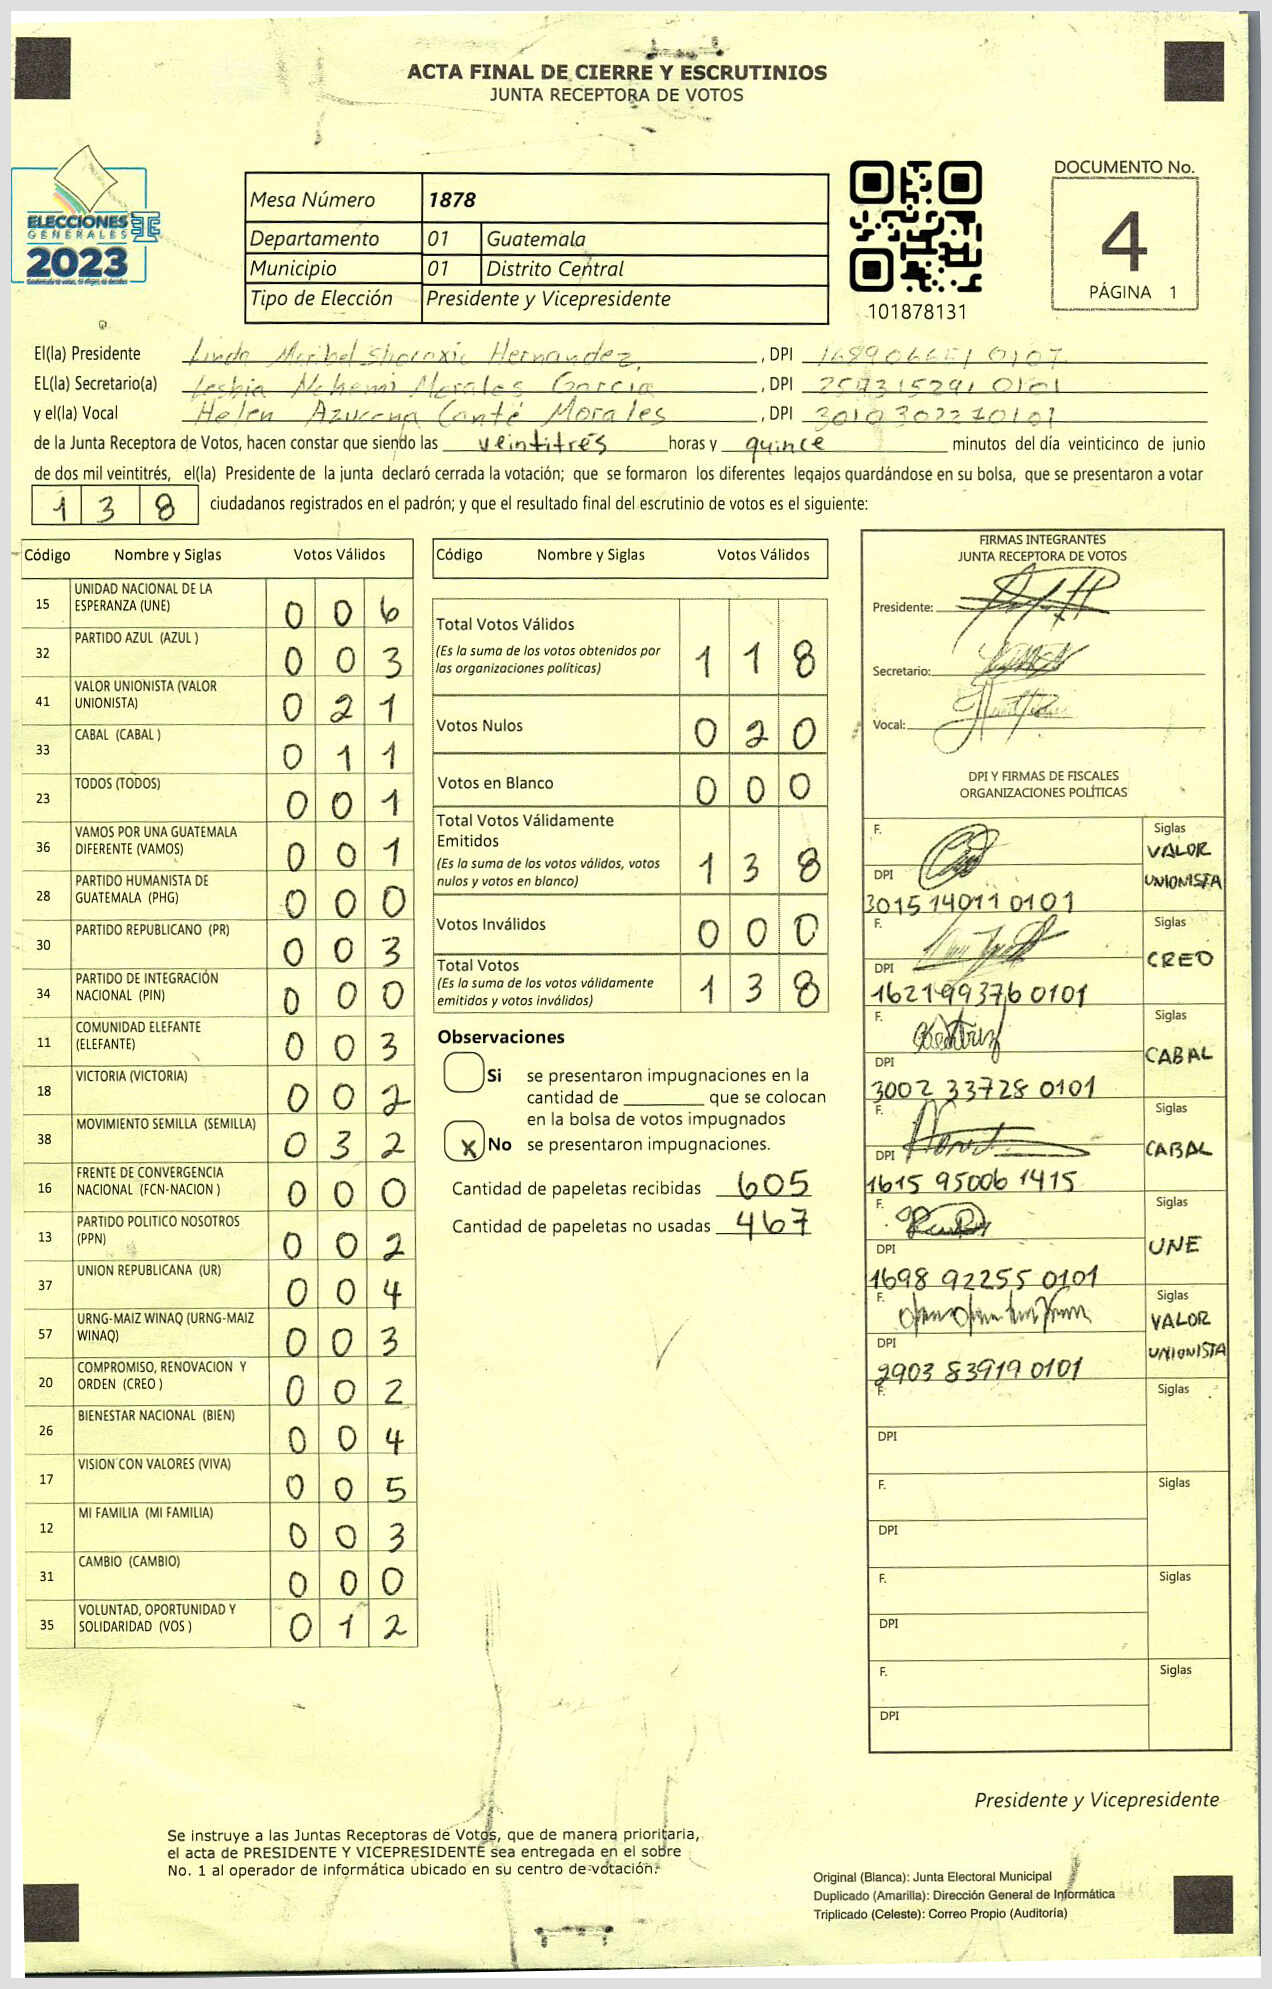 ACTA FINAL DE CIERRE Y ESCRUTINIOS
JUNTA RECEPTORA DE VOTOS
ELECCIONES
GENERALES
2023
Mesa Número 1878
Departamento 01 Guatemala
Municipio 01 Distrito Central
Tipo de Elección Presidente y Vicepresidente
101878131
DOCUMENTO No.
4
PÁGINA 1
El(la) Presidente Linda Maribel Hernandez, DPI
EL(la) Secretario(a) Lesbia Nohemi Morales Garcia, DPI 257315291 0101
y el(la) Vocal Helen Azucena Canté Morales, DPI 3010302270101
de la Junta Receptora de Votos, hacen constar que siendo las veintitrés horas y quince minutos del día veinticinco de junio
de dos mil veintitrés, el(la) Presidente de la junta declaró cerrada la votación; que se formaron los diferentes legajos guardándose en su bolsa, que se presentaron a votar
138 ciudadanos registrados en el padrón; y que el resultado final del escrutinio de votos es el siguiente:
Código Nombre y Siglas Votos Válidos
15 UNIDAD NACIONAL DE LA
ESPERANZA (UNE) 0 0 6
32 PARTIDO AZUL (AZUL ) 0 0 3
41 VALOR UNIONISTA (VALOR
UNIONISTA) 0 2 1
33 CABAL (CABAL ) 0 1 1
23 TODOS (TODOS) 0 0 1
36 VAMOS POR UNA GUATEMALA
DIFERENTE (VAMOS) 0 0 1
28 PARTIDO HUMANISTA DE
GUATEMALA (PHG) 0 0 0
30 PARTIDO REPUBLICANO (PR) 0 0 3
34 PARTIDO DE INTEGRACIÓN
NACIONAL (PIN) 0 0 0
11 COMUNIDAD ELEFANTE
(ELEFANTE) 0 0 3
18 VICTORIA (VICTORIA) 0 0 2
38 MOVIMIENTO SEMILLA (SEMILLA) 0 3 2
16 FRENTE DE CONVERGENCIA
NACIONAL (FCN-NACION ) 0 0 0
13 PARTIDO POLITICO NOSOTROS
(PPN) 0 0 2
37 UNION REPUBLICANA (UR) 0 0 4
57 URNG-MAIZ WINAQ (URNG-MAIZ
WINAQ) 0 0 3
20 COMPROMISO, RENOVACION Y
ORDEN (CREO ) 0 0 2
26 BIENESTAR NACIONAL (BIEN) 0 0 4
17 VISION CON VALORES (VIVA) 0 0 5
12 MI FAMILIA (MI FAMILIA) 0 0 3
31 CAMBIO (CAMBIO) 0 0 0
35 VOLUNTAD, OPORTUNIDAD Y
SOLIDARIDAD (VOS ) 0 1 2
Código Nombre y Siglas Votos Válidos
Total Votos Válidos
(Es la suma de los votos obtenidos por
las organizaciones políticas) 1 1 8
Votos Nulos 0 2 0
Votos en Blanco 0 0 0
Total Votos Válidamente
Emitidos
(Es la suma de los votos válidos, votos
nulos y votos en blanco) 1 3 8
Votos Inválidos 0 0 0
Total Votos
(Es la suma de los votos válidamente
emitidos y votos inválidos) 1 3 8
Observaciones
Si se presentaron impugnaciones en la
cantidad de ________ que se colocan
en la bolsa de votos impugnados
X No se presentaron impugnaciones.
Cantidad de papeletas recibidas 605
Cantidad de papeletas no usadas 467
FIRMAS INTEGRANTES
JUNTA RECEPTORA DE VOTOS
Presidente:
Secretario:
Vocal:
DPI Y FIRMAS DE FISCALES
ORGANIZACIONES POLÍTICAS
F. Siglas
VALOR
UNIONISTA
DPI
3015 14011 0101
F. Siglas
CREO
DPI
1621993760101
F. Siglas
CABAL
DPI
3002 33728 0101
F. Siglas
CABAL
DPI
1615 95006 1415
F. Siglas
UNE
DPI
1698 92255 0101
F. Siglas
VALOR
UNIONISTA
DPI
2903 83919 0101
F. Siglas
DPI
F. Siglas
DPI
F. Siglas
DPI
F. Siglas
DPI
Presidente y Vicepresidente
Se instruye a las Juntas Receptoras de Votos, que de manera prioritaria,
el acta de PRESIDENTE Y VICEPRESIDENTE sea entregada en el sobre
No. 1 al operador de informática ubicado en su centro de votación.
Original (Blanca): Junta Electoral Municipal
Duplicado (Amarilla): Dirección General de Informática
Triplicado (Celeste): Correo Propio (Auditoría)